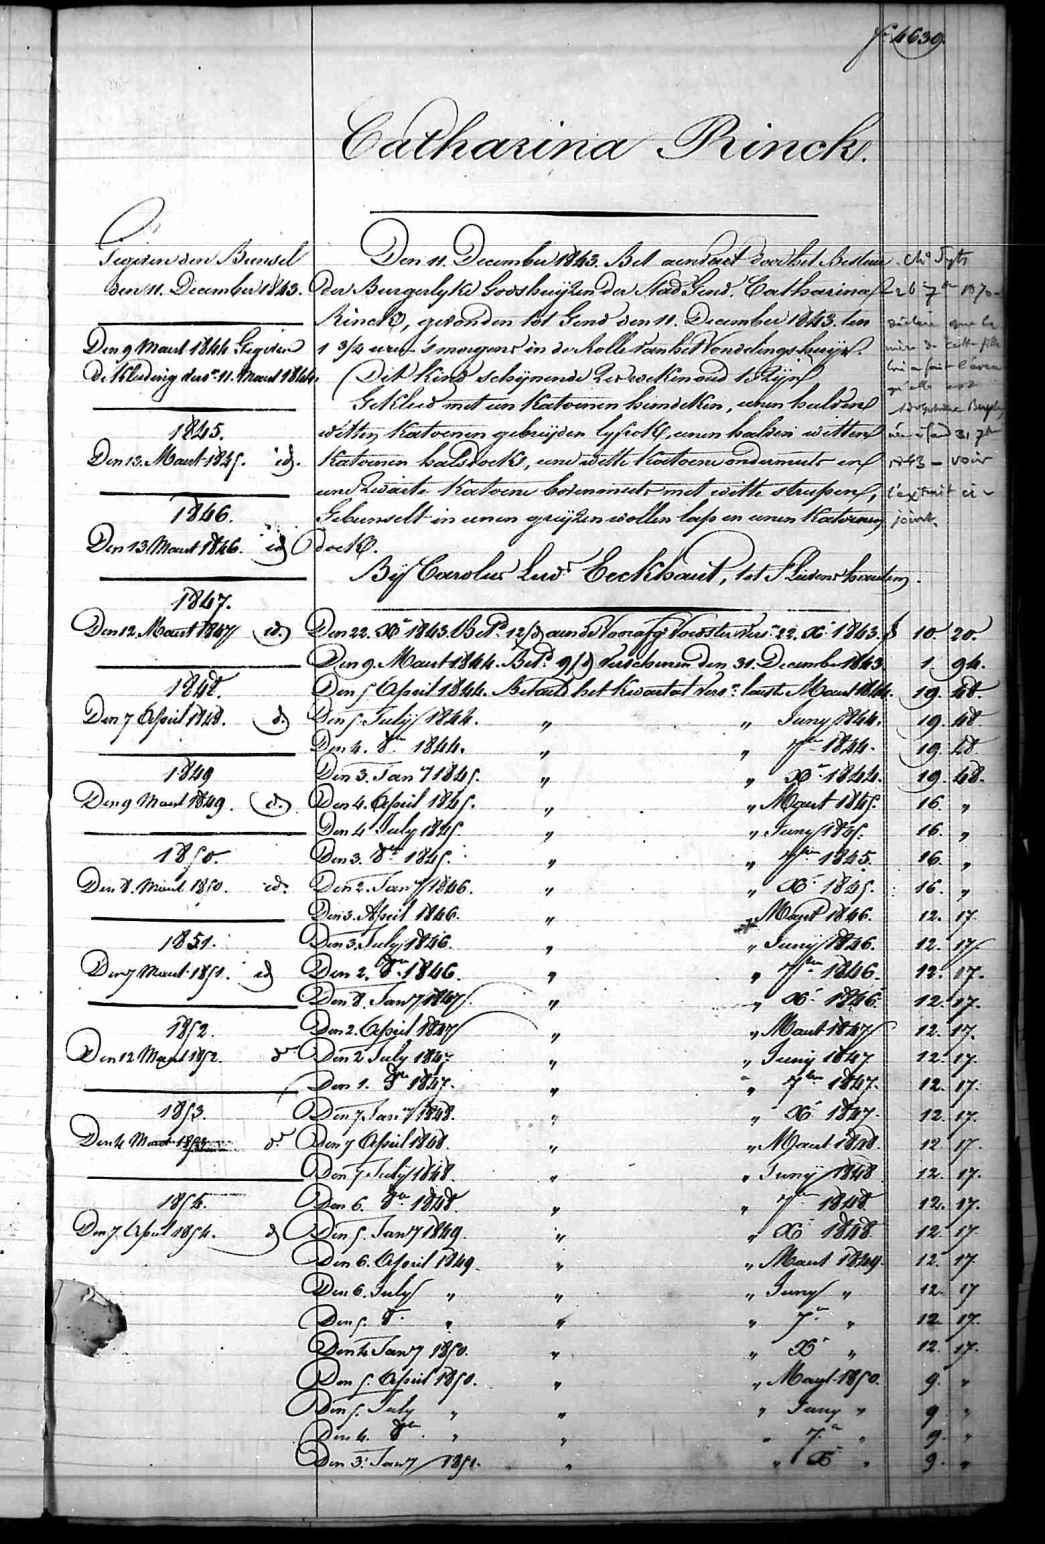 f° 4639.
Catharina Rinck.
Gegeven den Bunsel
den 11. December 1843.
Den 9 Maart 1844 Gegeven
de Kleding vers. 11. Maart 1844.
1845.
Den 13. Maart 1845. id.
1846.
Den 13 Maart 1846. id
1847.
Den 12 Maart 1847 id.
1848.
Den 7 April 1848. d.
1849
Den 9 Maart 1849. d.
1850.
Den 8. Maart 1850. id.
1851.
Den 7 Maart 1851. id
1852.
Den 12 Maart 1852. d°
1853.
Den 4 Maart 1853 d°
1854.
Den 7. April 1854. d
Den 11. December 1843. Bet aenvaert door het Bestuer
der Burgerlyke Godshuyzen der Stad Gend, Catharina
Rinck, gevonden tot Gend den 11. December 1843. ten
1 3/4 uren 's morgens in de Rolle van het Vondelingshuys.
(Dit Kind schynende Zes weken oud te Zyn)
Gekleed met een Katoenen hemdeken, eenen halven
witten Katoenen gebreyden lyfrok, eenen halven witten
Katoenen halsdoek, eene witte Katoene ondermuts en
eene Zwarte Katoene bovenmuts met witte strepen,
Gebunselt in eenen gryzen wollen lap en eenen Katoenen
doek.
By Carolus Lud. Eeckhaut, tot St Lievens hautem.
Den 22. Xb. 1843. Bet. 12/d aen de Voorafg. Voedster vers. 22. Xb. 1843. f 10. 20.
Den 9. Maart 1844. Bet. 9/d Verschenen den 31. December 1843. 1. 94.
Den 5 April 1844. Betaeld het Kwartael vers. laeste Maart 1844. 19. 48.
Den 5. July 1844. " " Juny 1844. 19. 48
Den 4. 8ber 1844. " " 7ber 1844. 19. 48.
Den 3. Jany 1845. " " Xb. 1844. 19. 48.
Den 4. April 1845. " " Maart 1845. 16. "
Den 4 July 1845. " " Juny 1845. 16. "
Den 3. 8ber 1845. " " 7ber 1845. 16. "
Den 2. Jany 1846. " " Xb. 1845. 16. "
Den 3. April 1846. " " Maart 1846. 12. 17.
Den 3. July 1846. " " Juny 1846. 12. 17
Den 2. 8ber 1846. " " 7ber 1846. 12. 17.
Den 8. Jany 1847 " " Xb. 1846. 12. 17.
Den 2. April 1847 " " Maart 1847 12. 17.
Den 2 July 1847. " " Juny 1847 12. 17.
Den 1. 8ber 1847. " " 7ber 1847. 12. 17.
Den 7 Jany 1848. " " Xb. 1847. 12. 17.
Den 7 April 1848. " " Maart 1848. 12. 17.
Den 7 July 1848 " " Juny 1848 12. 17.
Den 6. 8ber 1848. " " 7ber 1848. 12. 17.
Den 5. Jany 1849. " " Xb. 1848 12. 17.
Den 6. April 1849. " " Maart 1849. 12. 17.
Den 6. July " " " Juny " 12. 17
Den 5. 8b. " " " 7ber " 12 17.
Den 4 Jany 1850. " " Xb. " 12. 17.
Den 5. April 1850. " " Maart 1850. 9. "
Den 5. July " " " Juny " 9 "
Den 4. 8ber " " " 7ber " 9. "
Den 3. Jany 1851. " " Xb. " 9. "
26 7bre 1870
déclare que la
mère de cette fille
lui a fait l'aveu
qu'elle est
née à Gand 31 7bre
1843 – voir
l'extrait ci-
joint.